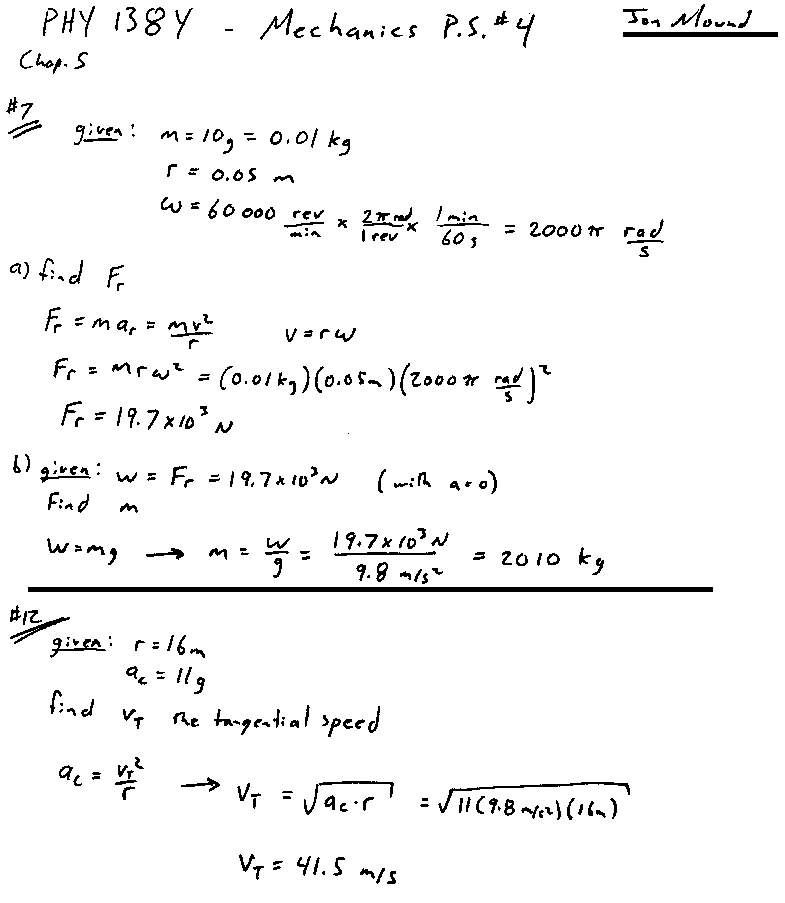 PHY 138Y - Mechanics P.S. #4 Jon Mound
Chap. 5
#7
given: m = 10g = 0.01 kg
r = 0.05 m
ω = 60 000 rev/min × 2π rad/1 rev × 1 min/60 s = 2000π rad/s
a) find Fr
Fr = m ar = mv²/r v = rω
Fr = mrω² = (0.01 kg)(0.05m)(2000π rad/s)²
Fr = 19.7 × 10³ N
b) given: w = Fr = 19.7 × 10³ N (with a=0)
Find m
W = mg → m = W/g = 19.7 × 10³ N / 9.8 m/s² = 2010 kg
#12
given: r = 16m
ac = 11g
find vT the tangential speed
ac = vT²/r → vT = √(ac·r) = √(11(9.8 m/s²)(16m))
VT = 41.5 m/s